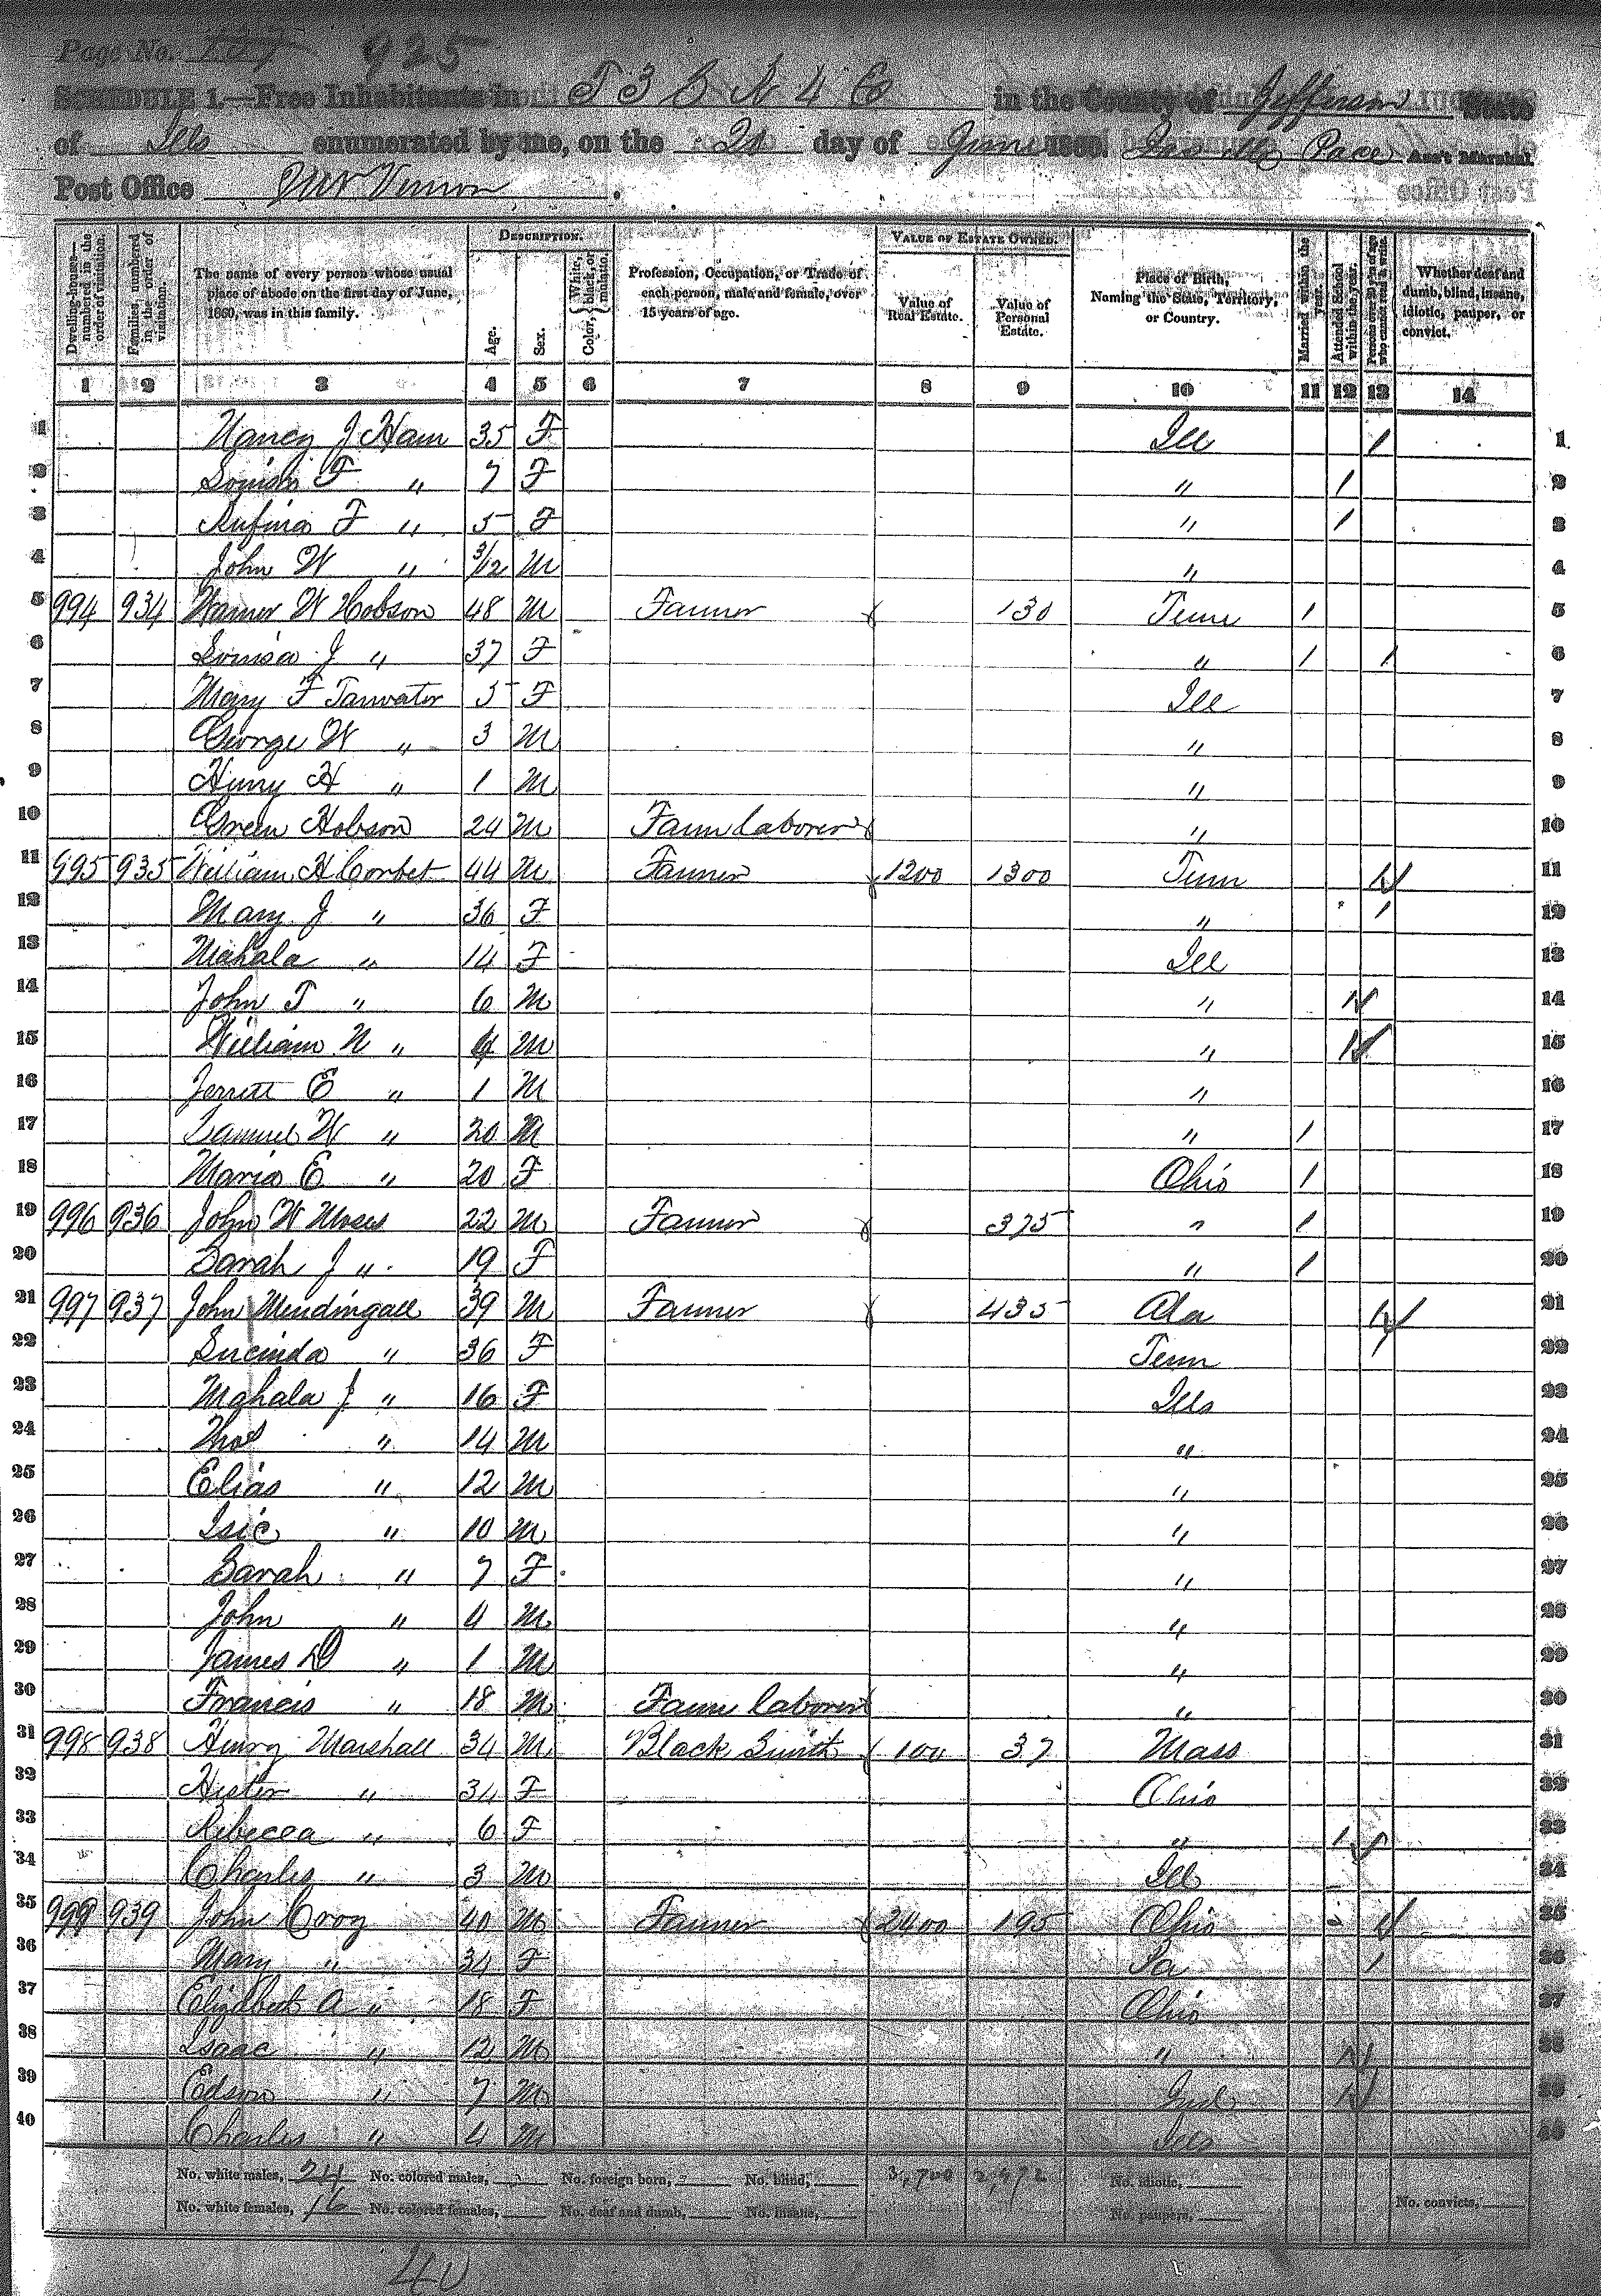 Page No. 925
SCHEDULE 1.—Free Inhabitants in T 3 S N 4 E in the County of Jefferson State
of Ills enumerated by me, on the 21 day of June 1860. Pace Ass't Marshal.
Post Office Mt Vernon.
Dwelling-houses—numbered in the order of visitation. Families numbered in the order of visitation. The name of every person whose usual place of abode on the first day of June, 1860, was in this family. Description. Age. Sex. Color, {White, black, or mulatto. Profession, Occupation, or Trade of each person, male and female, over 15 years of age. Value of Estate Owned. Value of Real Estate. Value of Personal Estate. Place of Birth, Naming the State, Territory, or Country. Married within the year. Attended School within the year. Persons over 20 y'rs of age who cannot read & write. Whether deaf and dumb, blind, insane, idiotic, pauper, or convict.
1 2 3 4 5 6 7 8 9 10 11 12 13 14
1 Nancy J Ham 35 F Ill 1 1
2 Louisa F " 7 F " 1 2
3 Rufina F " 5 F " 1 3
4 John W " 3/12 M " 4
5 994 934 Warner W Hobson 48 M Farmer 130 Tenn 1 5
6 Louisa J " 37 F " 1 1 6
7 Mary F Tarwater 5 F Ill 7
8 George W " 3 M " 8
9 Henry H " 1 M " 9
10 Green Hobson 24 M Farm laborer " 10
11 995 935 William H Corbet 44 M Farmer 1200 1300 Tenn 1 11
12 Mary J " 36 F " 1 12
13 Mahala " 14 F Ill 13
14 John T " 6 M " 1 14
15 William N " 4 M " 1 15
16 Jerrett E " 1 M " 16
17 Samuel W " 20 M " 1 17
18 Maria E " 20 F Ohio 1 18
19 996 936 John W Moses 22 M Farmer 375 " 1 19
20 Sarah J " 19 F " 1 20
21 997 937 John Mendingall 39 M Farmer 435 Ala 1 21
22 Lucinda " 36 F Tenn 22
23 Mahala J " 16 F Ills 23
24 Thos " 14 M " 24
25 Elias " 12 M " 25
26 Isic " 10 M " 26
27 Sarah " 7 F " 27
28 John " 4 M " 28
29 James D " 1 M " 29
30 Francis " 18 M Farm laborer " 30
31 998 938 Henry Marshall 34 M Black Smith 100 37 Mass 31
32 Hester " 34 F Ohio 32
33 Rebecca " 6 F " 1 33
34 Charles " 3 M Ill 34
35 999 939 John Croy 40 M Farmer 2400 195 Ohio 1 35
36 Mary " 34 F Pa 1 36
37 Elizabeth A " 18 F Ohio 37
38 Isaac " 12 M " 1 38
39 Edson " 7 M Ind 1 39
40 Charles " 4 M Ills 40
No. white males, 24 No. colored males, No. foreign born, No. blind, 3,700 2,472 No. idiotic,
No. white females, 16 No. colored females, No. deaf and dumb, No. insane, No. paupers, No. convicts,
40